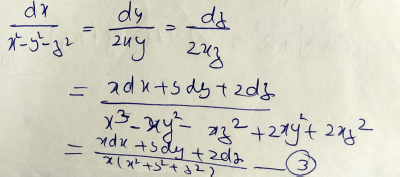 dx/(x²-y²-z²) = dy/(2xy) = dz/(2xz)
= (xdx+ydy+zdz)/(x³-xy²-xz²+2xy²+2xz²)
= (xdx+ydy+zdz)/(x(x²+y²+z²)) —— ③